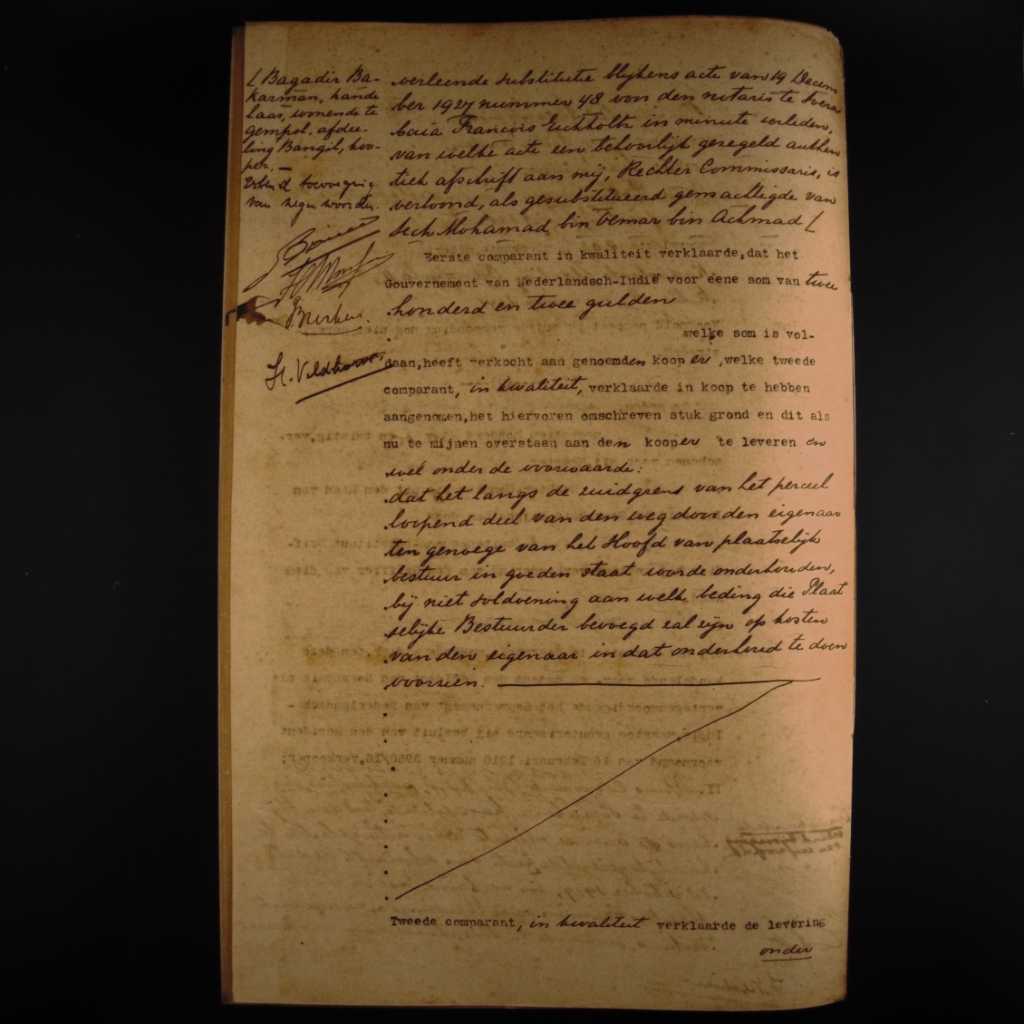 [ Bagadir Ba-
karman, hande
laar, wonende te
gempol, afdee-
ling Bangil, koo-
per. —
van negen woorden.
H. Veldhoven
verleende substitutie blijkens acte van 19 Decem
ber 1927 nummer 48 von den notaris te Soera
baia Francois in minute verleden,
van welke acte een behoorlijk gezegeld authen
tiek afschrift aan mij, Rechter Commissaris, is
vertoond, als gesubstitueerd gemachtigde van
Sech Mohamad bin Oemar bin Achmad [
Eerste comparant in kwaliteit verklaarde, dat het
Gouvernement van Nederlandsch-Indië voor eene som van twee
honderd en twee gulden
welke som is vol-
daan, heeft verkocht aan genoemden kooper, welke tweede
comparant, in kwaliteit, verklaarde in koop te hebben
aangenomen, het hiervoren omschreven stuk grond en dit als
nu te mijnen overstaan aan den kooper te leveren en
wel onder de voorwaarde:
dat het langs de zuidgrens van het perceel
loopend deel van den weg door den eigenaar
ten genoege van het Hoofd van plaatselijk
bestuur in goeden staat worde onderhouden,
bij niet voldoening aan welk beding die Plaat
selijke Bestuurder bevoegd zal zijn op kosten
van den eigenaar in dat onderhoud te doen
voorzien. —
Tweede comparant, in kwaliteit verklaarde de levering
onder